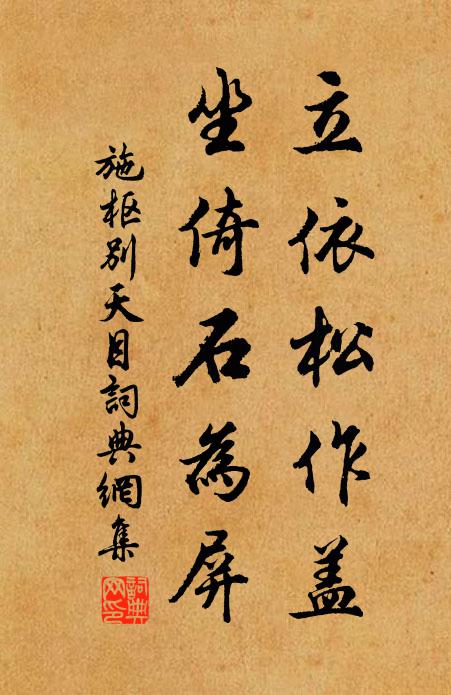 立依松作盖
坐倚石為屏
施枢别天目詞典網集
詞典
网印